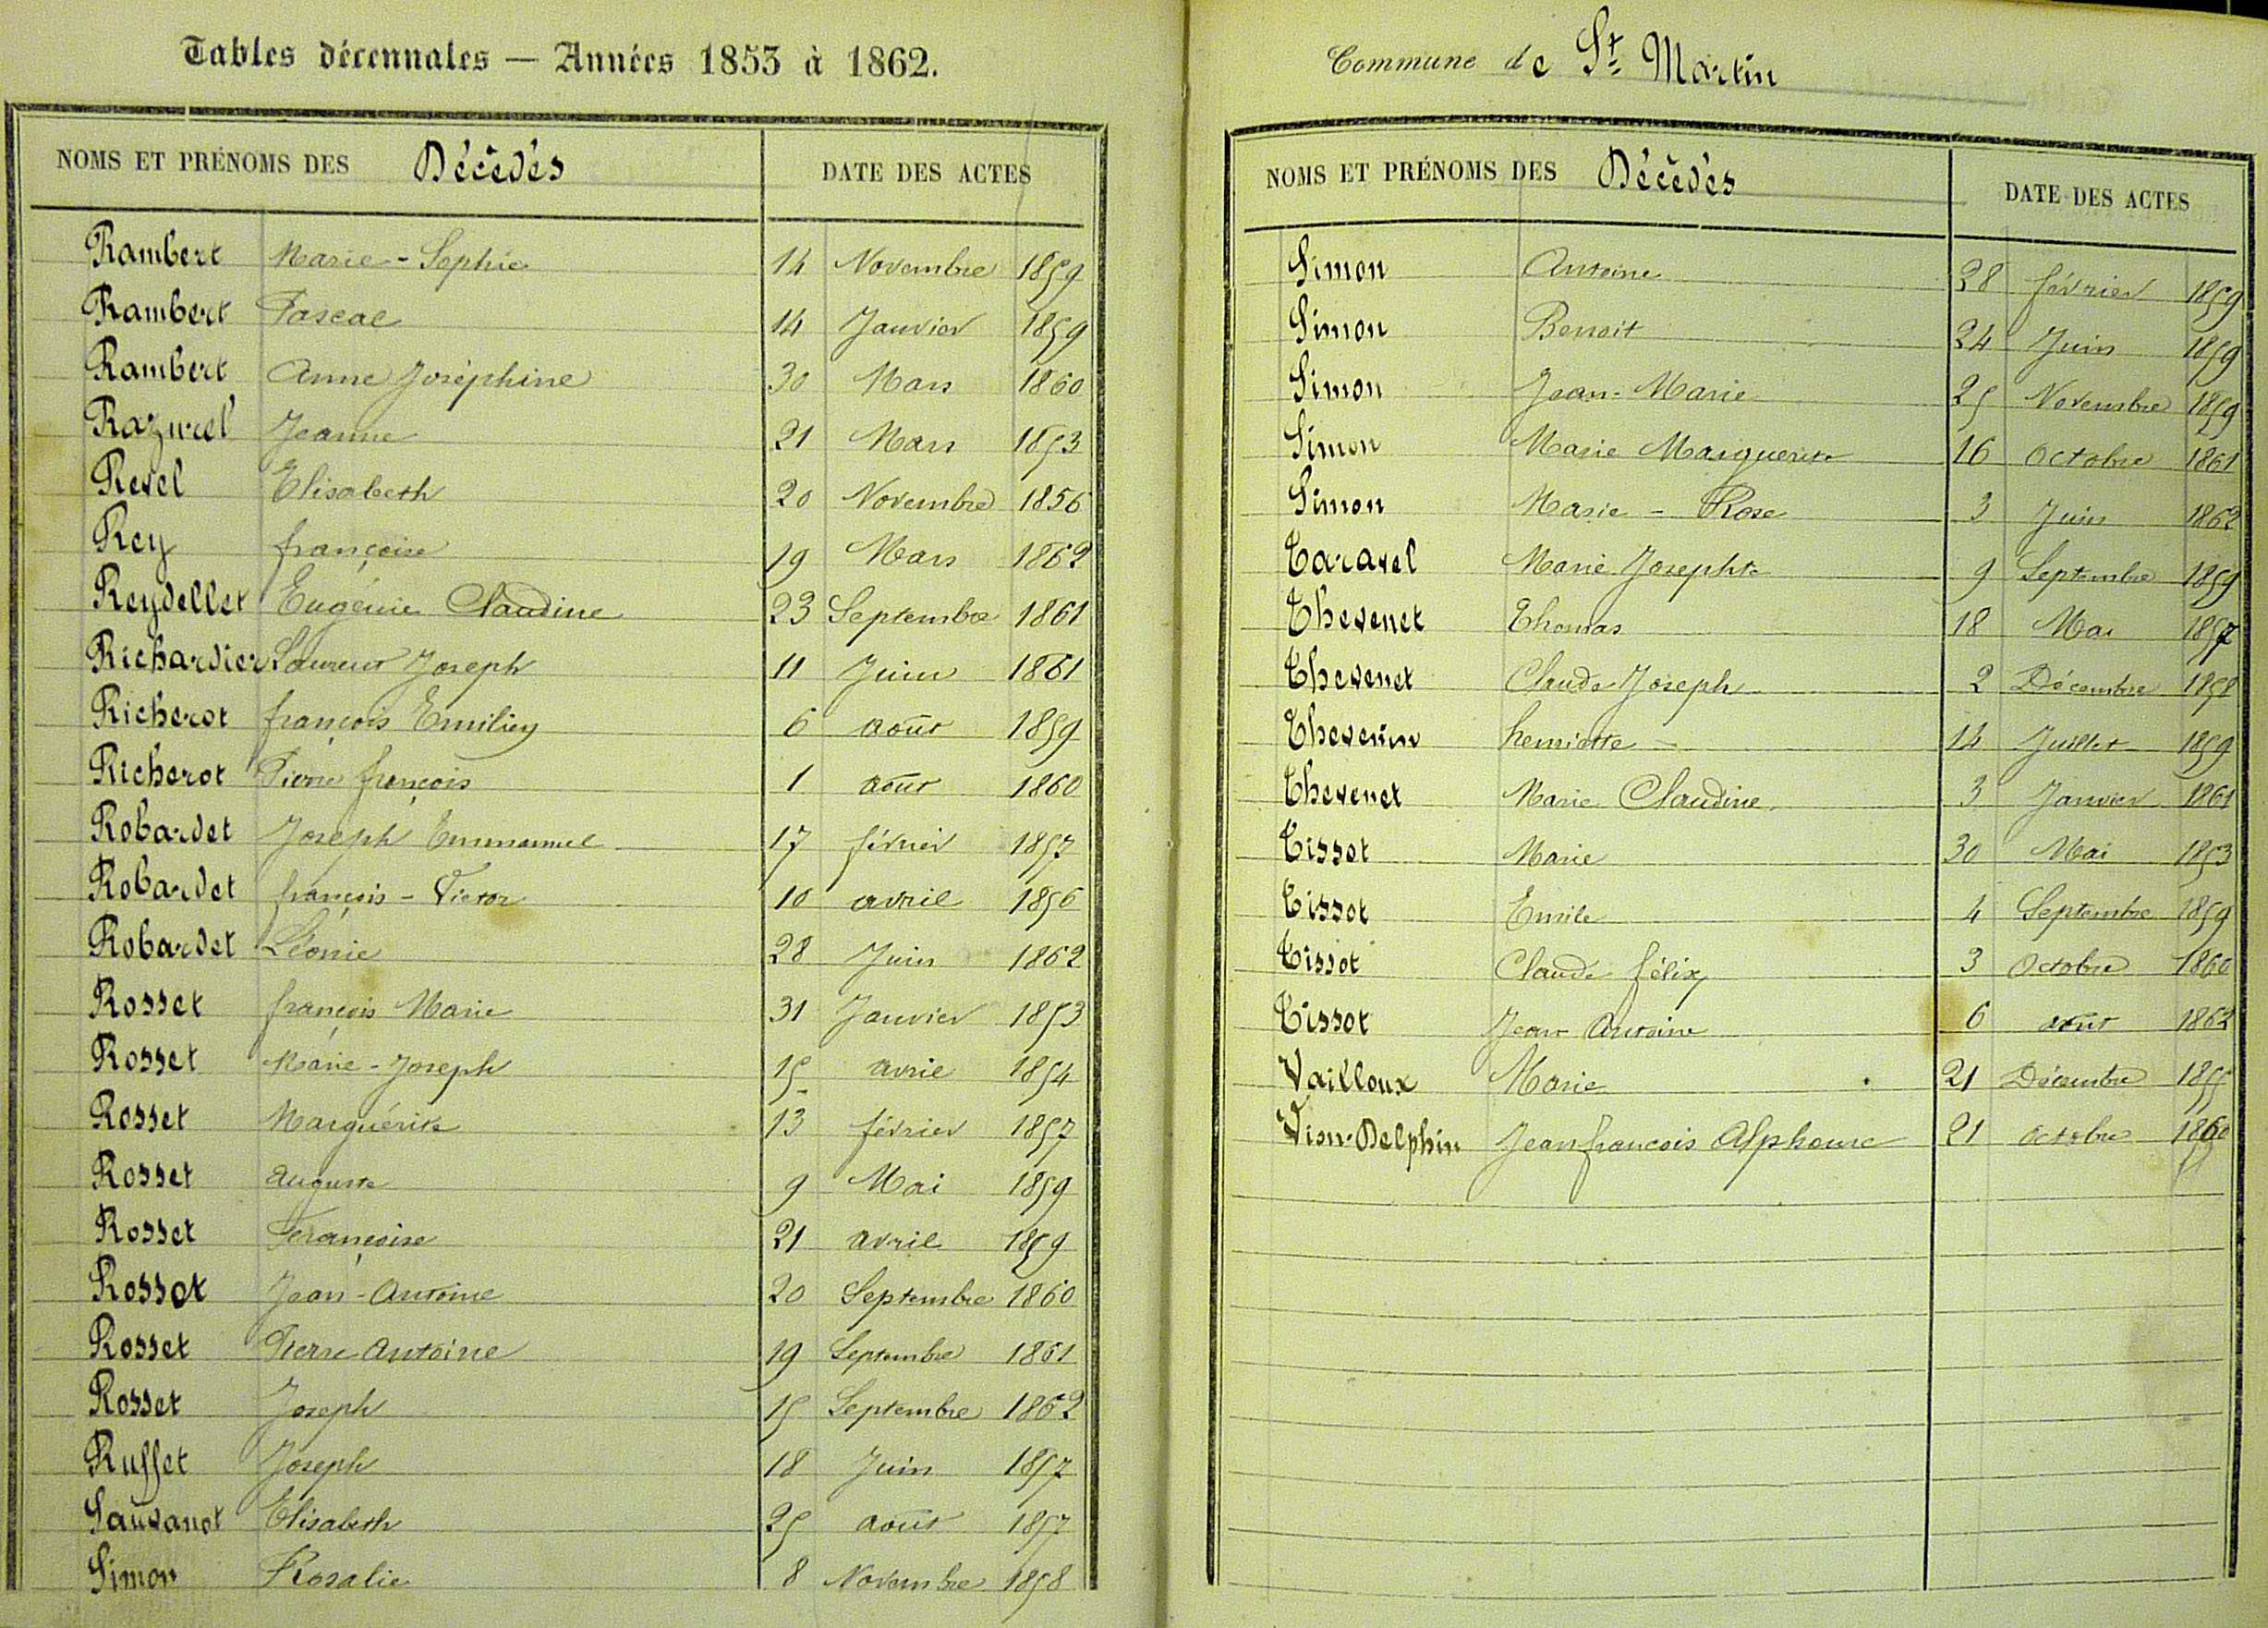 Tables décennales — Années 1853 à 1862.
NOMS ET PRÉNOMS DES Décédés DATE DES ACTES
Rambert Marie-Sophie 14 Novembre 1859
Rambert Pascal 14 Janvier 1859
Rambert Anne Joséphine 30 Mars 1860
Razurel Jeanne 21 Mars 1853
Revel Elisabeth 20 Novembre 1856
Rey françoise 19 Mars 1862
Reydellet Eugénie Claudine 23 Septembre 1861
Richardier Laurent Joseph 11 Juin 1861
Richerot françois Emilien 6 août 1859
Richerot Pierre françois 1 août 1860
Robardet Joseph Emmanuel 17 février 1857
Robardet françois-Victor 10 avril 1856
Robardet Léonie 28 Juin 1862
Rosset françois Marie 31 Janvier 1853
Rosset Marie-Joseph 15 avril 1854
Rosset Marguérite 13 février 1857
Rosset auguste 9 Mai 1859
Rosset Françoise 21 avril 1859
Rosset Jean-Antoine 20 Septembre 1860
Rosset Pierre Antoine 19 Septembre 1861
Rosset Joseph 15 Septembre 1862
Ruffet Joseph 18 Juin 1857
Sauvanot Elisabeth 25 août 1857
Simon Rosalie 8 Novembre 1858
Commune de St Martin
NOMS ET PRÉNOMS DES Décédés DATE DES ACTES
Simon Antoine 28 février 1859
Simon Benoit 24 Juin 1859
Simon Jean-Marie 25 Novembre 1859
Simon Marie Marguerite 16 Octobre 1861
Simon Marie-Rose 3 Juin 1862
Taravel Marie Josephte 9 Septembre 1859
Thevenet Thomas 18 Mai 1857
Thevenet Claude Joseph 2 Décembre 1858
Thevenin henriette 14 Juillet 1859
Thevenet Marie Claudine 3 Janvier 1861
Tissot Marie 30 Mai 1853
Tissot Emile 4 Septembre 1859
Tissot Claude félix 3 Octobre 1860
Tissot Jean Antoine 6 août 1862
Vailloux Marie 21 Décembre 1855
Vion-Delphin Jean françois Alphonse 21 octobre 1860